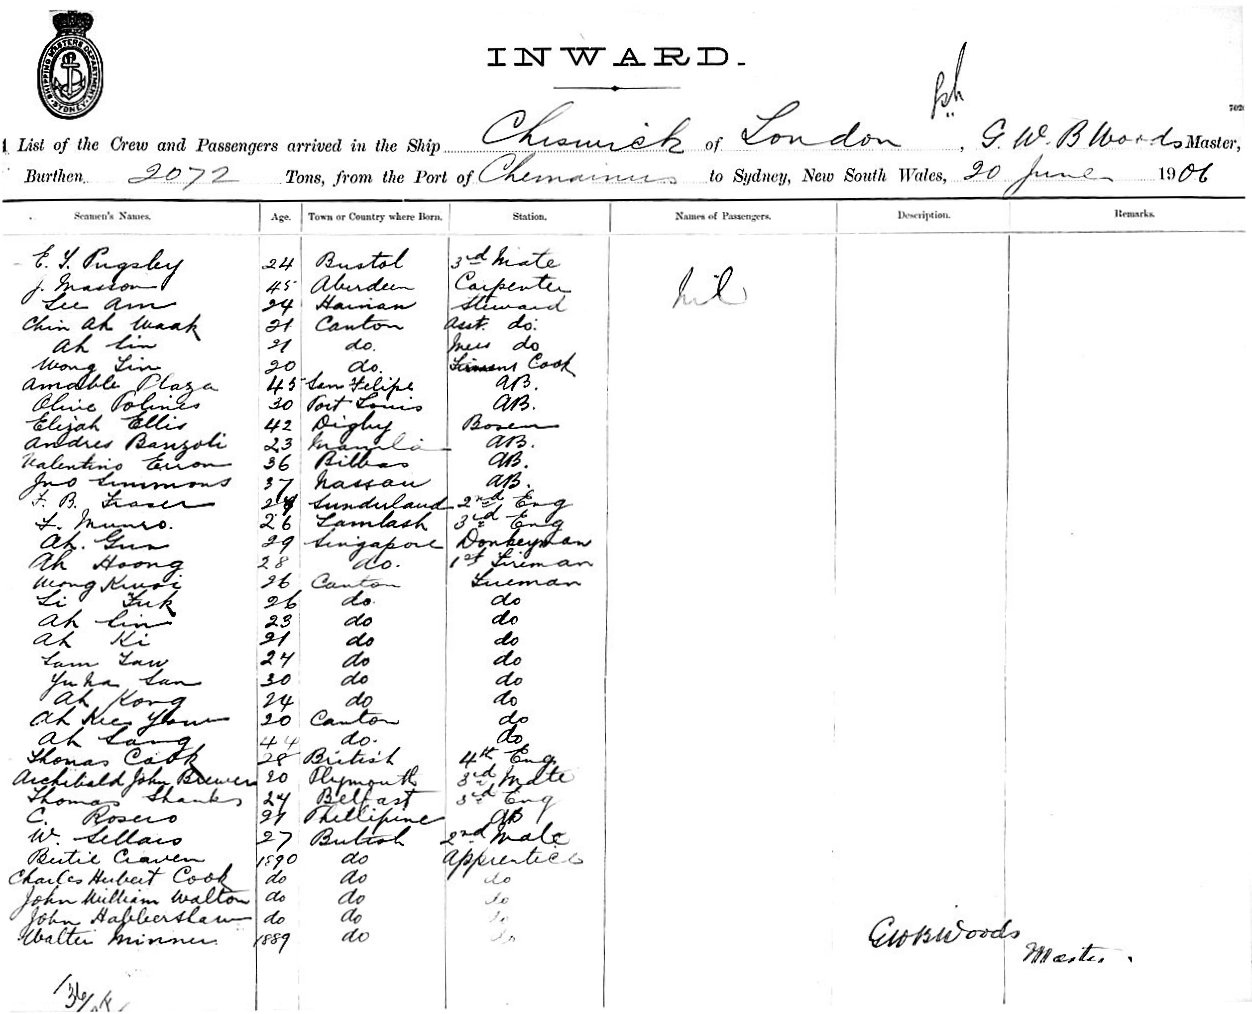 SHIPPING MASTERS DEPARTMENT SYDNEY
INWARD.
List of the Crew and Passengers arrived in the Ship Cheswick of London, G. W. B Woods Master,
Burthen 2072 Tons, from the Port of Chemainus to Sydney, New South Wales, 20 June 1906
Seamen's Names. Age. Town or Country where Born. Station. Names of Passengers. Description. Remarks.
E. Y. Pugsley 24 Bristol 3rd Mate
J. Masson 45 Aberdeen Carpenter nil
Lee Am 24 Hainan Steward
Chin Ah Waak 21 Canton Asst. do.
Ah Lin 21 do. Mess do
Wong Lin 20 do. Cook
Amable Plaza 45 San Felipe AB.
Olive Polines 30 Port Louis AB.
Elijah Ellis 42 Digby Bosen
Andres Banzoli 23 Manila AB.
Valentino Erron 36 Bilbao AB.
Jno Simmons 37 Nassau AB.
F. B. Fraser Sunderland 2nd Eng
F. Munro. 26 Lamlash 3rd Eng
Ah. Gun 29 Singapore Donkeyman
Ah Hoong 28 do. 1st Fireman
Wong Kwoi 26 Canton Fireman
Li Fuk 26 do do
Ah Lin 23 do do
Ah Ki 21 do do
Lam Law 24 do do
Yu Na San 30 do do
Ah Kong 24 do do
Ah Kee Yow 20 Canton do
Ah Sang 44 do. do
Thomas Cook 28 British 4th Eng
Archibald John Brewer 20 Plymouth 3rd Mate
Thomas Shanks 24 Belfast 3rd Eng
C. Rosero 27 Phillipine AB
W. Sellars 27 British 2nd Mate
Bertie Craven 1890 do Apprentice
Charles Hubert Cook do do do
John William Walton do do do
John Habbershaw do do do
Walter Minner 1889 do do
G W B Woods
Master.